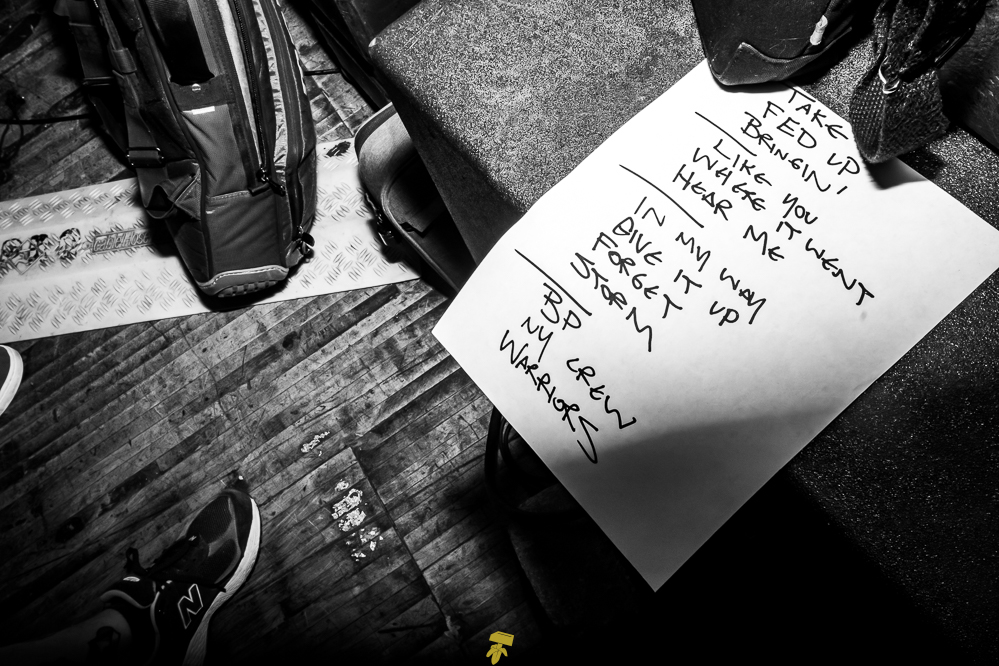 TAKE
FED UP
BRINGIN'
LIKE YOU
WHERE IT WENT
HEAR ME
IN MY WAY
GIVE IT UP
FORGET
STORM
NY CREW
WARRIORS
N